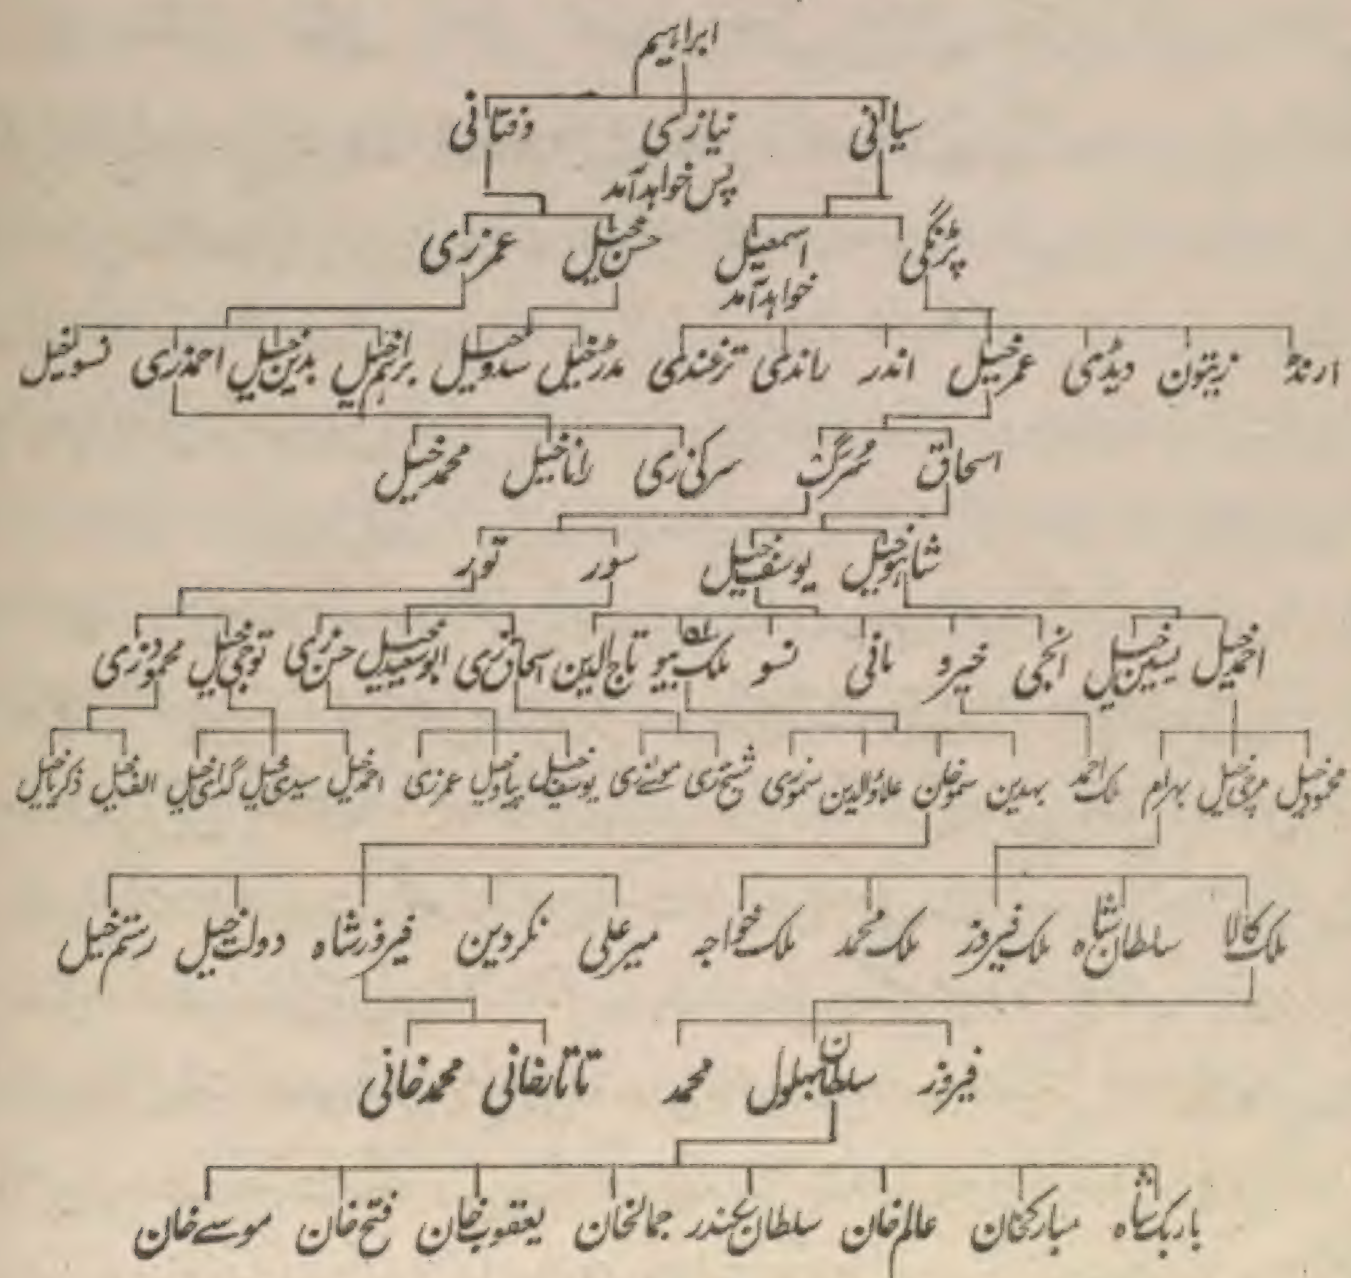 ابراہیم
سیانی نیازی دفتانی
پس خواہد آمد
پڑنگی اسمعیل حسن خیل عمرزی
خواہد آمد
ارنڈ زیتون دیڈی عمرخیل اندر راندی ترغندی مدڑخیل سدوخیل براہم خیل بدین خیل احمدزی نسوخیل
اسحاق سُرگ سرکی زی راناخیل محمدخیل
شاہوخیل یوسف خیل سور تور
احمدخیل یسین خیل انجی خیرو مانی نسو ملک بیو تاج الدین اسحاق زی ابوسعیدخیل حسن زی توجی خیل محمودزی
محمودخیل بہرام ملک احمد بہدین سموخان علاؤالدین سموسی شیخ زی موسےٰ زی یوسف خیل پیاوخیل عمرزی احمدخیل سیدی خیل گدای خیل الف خیل ذکریاخیل
ملک کالا سلطان شاہ ملک فیروز ملک محمد ملک خواجہ میرعلی نکردین فیروزشاہ دولت خیل رستم خیل
فیروز سلطان بہلول محمد تاتارخانی محمدخانی
باربک شاہ مبارکخان عالم خان سلطان سکندر جمالخان یعقوب خان فتح خان موسےٰ خان